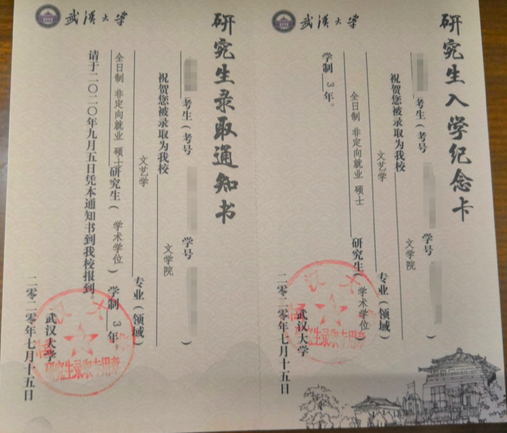 武汉大学
研究生录取通知书
考生(考号 学号 )
祝贺您被录取为我校 文学院
文艺学 专业(领域)
全日制 非定向就业 硕士研究生( 学术学位 )学制 3 年。
请于二〇二〇年九月五日凭本通知书到我校报到
武汉大学
二〇二〇年七月十五日
研究生录取专用章
武汉大学
研究生入学纪念卡
考生(考号 学号 )
祝贺您被录取为我校 文学院
文艺学 专业(领域)
全日制 非定向就业 硕士 研究生( 学术学位 )
学制 3 年。
武汉大学
二〇二〇年七月十五日
研究生录取专用章